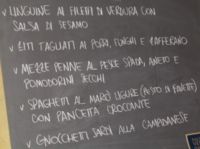 LINGUINE AI FILETTI DI VERDURA CON
SALSA DI SESAMO
ZITI TAGLIATI AI PORRI, FUNGHI E ZAFFERANO
MEZZE PENNE AL PESCE SPADA, ANETO E
POMODORINI SECCHI
SPAGHETTI AL MARÒ LIGURE (PESTO DI FAVETTE)
CON PANCETTA CROCCANTE
GNOCCHETTI SARDI ALLA CAMPIDANESE